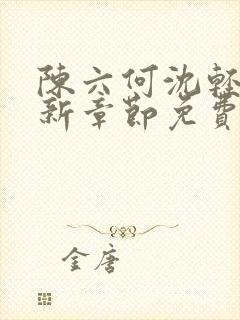 陳六何沈輕
新章節免費
金唐